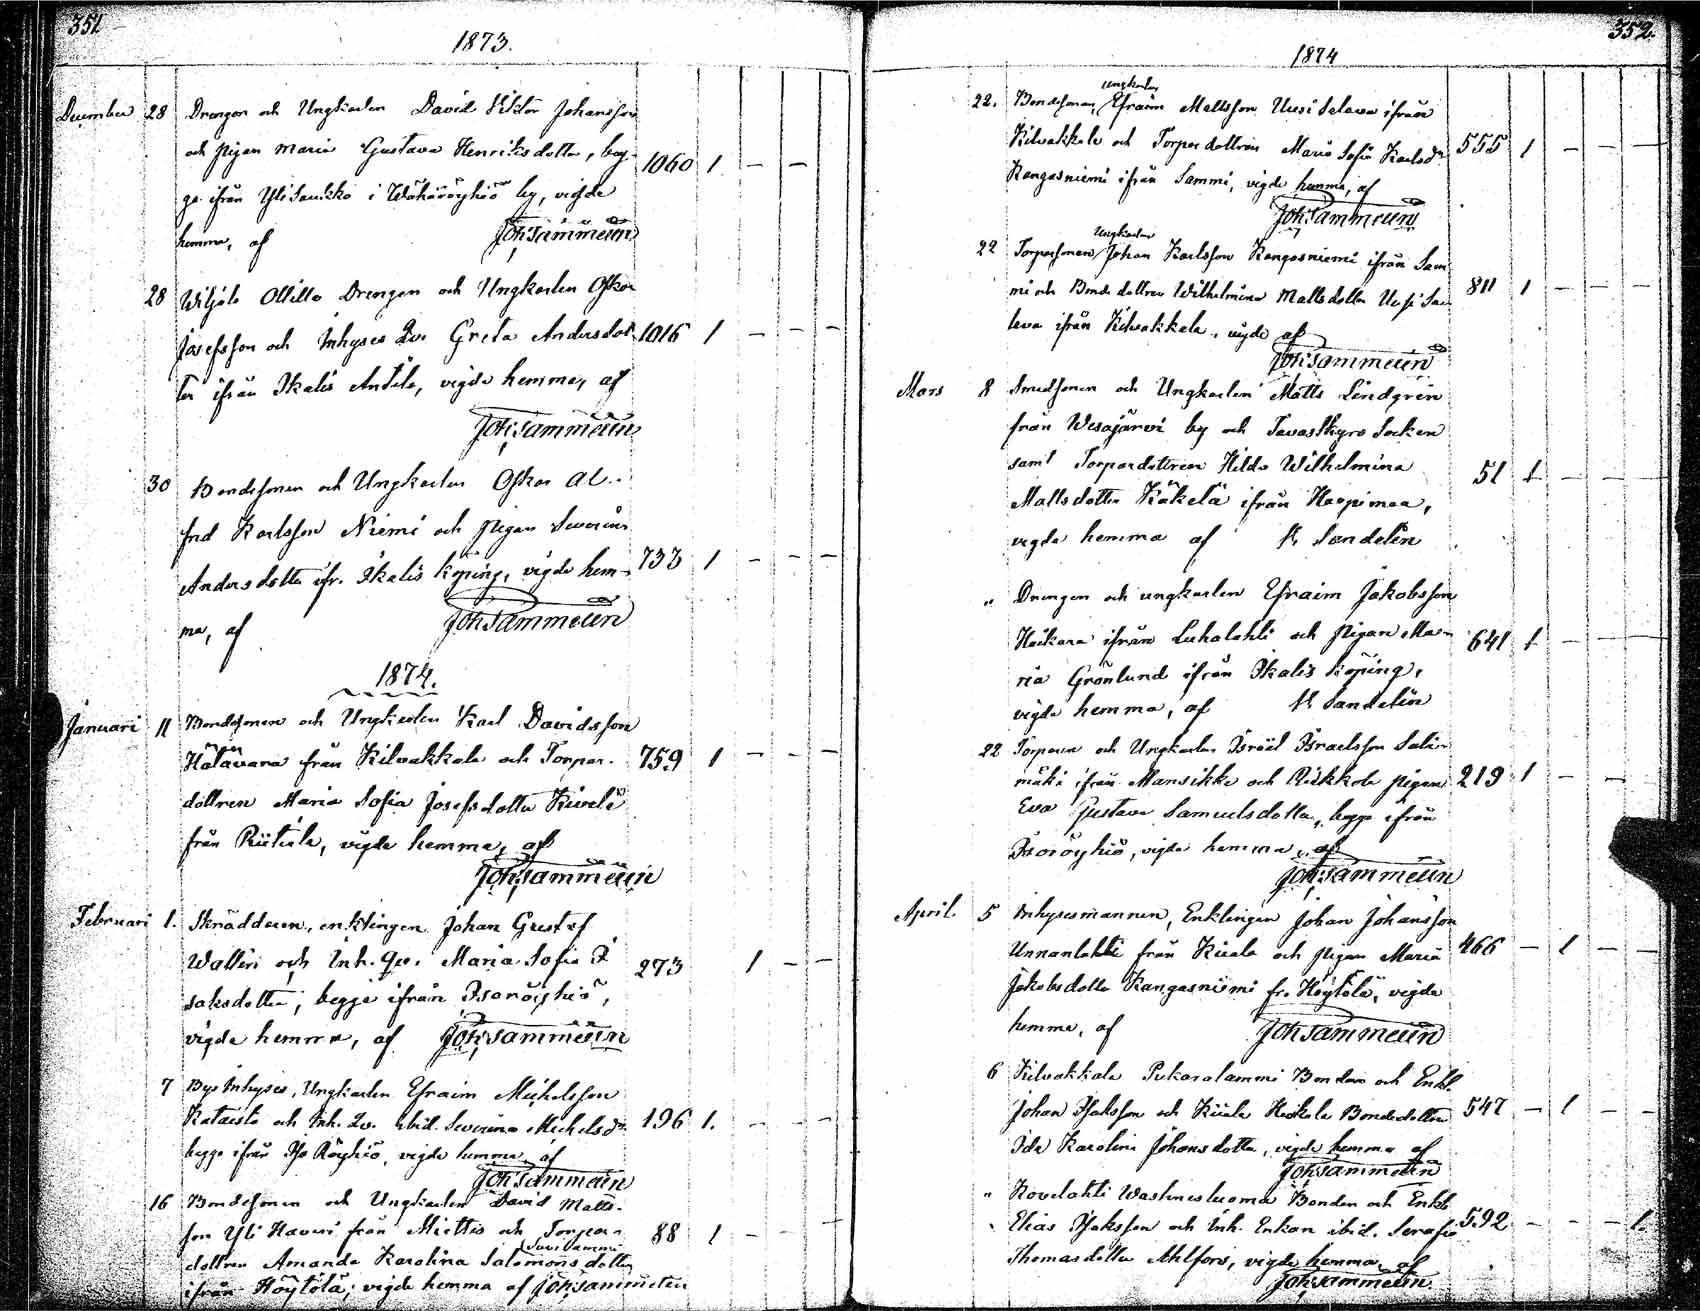 351.
1873.
December 28 Drengen och Ungkarlen David Viktor Johansson
och pigan Maria Gustava Henriksdotter, beg-
ge ifrån Yli Saukko i Wähäröyhiö by, vigde 1060 1 – – –
hemma, af Joh: Sammelin
28 Wiljals Ollilla Drengen och Ungkarlen Oskar
Josefsson och Inhyses Qv. Greta Andersdot- 1016 1 – – –
ter ifrån Ikalis Antila, vigde hemma, af
Joh: Sammelin
30 Bondesonen och Ungkarlen Oskar Al-
fred Karlsson Niemi och pigan Severina
Andersdotter ifr. Ikalis köping, vigde hem- 733 1 – – –
ma, af Joh Sammelin
1874.
Januari 11 Bondesonen och Ungkarlen Karl Davidsson
Hätävara från Kilvakkala och Torpar- 759 1 – – –
dottren Maria Sofia Josefsdotter Kivelä
från Riitiala, vigde hemma, af
Joh: Sammelin
Februari 1. Skräddaren, enklingen Johan Gustaf
Wallin och Inh. Qv. Maria Sofia I- 273 1 – –
saksdotter, begge ifrån Isoröyhiö,
vigde hemma, af Joh: Sammelin
7 Bys Inhyses, Ungkarlen Efraim Michelsson
Kataisto och Inh. Qv. ibid. Severina Michelsdr 196 1. – – –
begge ifrån Iso Röyhiö, vigde hemma, af
Joh: Sammelin
16 Bondesonen och Ungkarlen David Matts-
son Yli Haveri från Miettis och Torpar- 88 1 – –
dottren Amanda Karolina Salomonsdotter
ifrån Höytölä, vigde hemma af Joh: Sammelin
352.
1874
Ungkarlen
22. Bondesonen, Efraim Mattsson Uusi Salava ifrån
Kilvakkala och Torpardottren Maria Sofia Karlsdr 555 1 – – –
Kangasniemi ifrån Sammi, vigde hemma, af
Joh: Sammelin
Ungkarlen
22 Torparsonen Johan Karlsson Kangasniemi ifrån Sam-
mi och Bondedottren Wilhelmina Mattsdotter Uusi Sa- 811 1 – – –
lava ifrån Kilvakkala, vigde af
Joh: Sammelin
Mars 8 Smedsonen och Ungkarlen Matts Lindgren
från Wesajärvi by och Tavastkyro Socken
samt Torpardottren Hilda Wilhelmina 51 1 – – –
Mattsdotter Käkelä ifrån Haapimaa,
vigde hemma af K Sandelin
" Drengen och ungkarlen Efraim Jakobsson
Heikara ifrån Luhalahti och pigan Ma- 641 1 – – –
ria Grönlund ifrån Ikalis köping,
vigde hemma, af K Sandelin
22 Torparen och Ungkarlen Israel Israelsson Sali-
mäki ifrån Mansikka och Rikkola pigan 219 1 – –
Eva Gustava Samuelsdotter, begge ifrån
Isoröyhiö, vigde hemma, af
Joh: Sammelin
April. 5 Inhysesmannen, Enklingen Johan Johansson
Unnanlahti från Kiiala och pigan Maria 466 – 1 – –
Jakobsdotter Kangasniemi fr. Höytölä, vigde
hemma, af Joh Sammelin
6 Kilvakkala Pukaralammi Bonden och Enkl.
Johan Isaksson och Kiiala Heikola Bondedotter 547 – 1 – –
Ida Karolina Johansdotter, vigde hemma af
Joh: Sammelin
" Kovelahti Wastinesluoma Bonden och Enkl.
Elias Isaksson och Inh. Enkan ibid. Serafia 592 – – – 1.
Thomasdotter Ahlfors, vigde hemma af
Joh: Sammelin